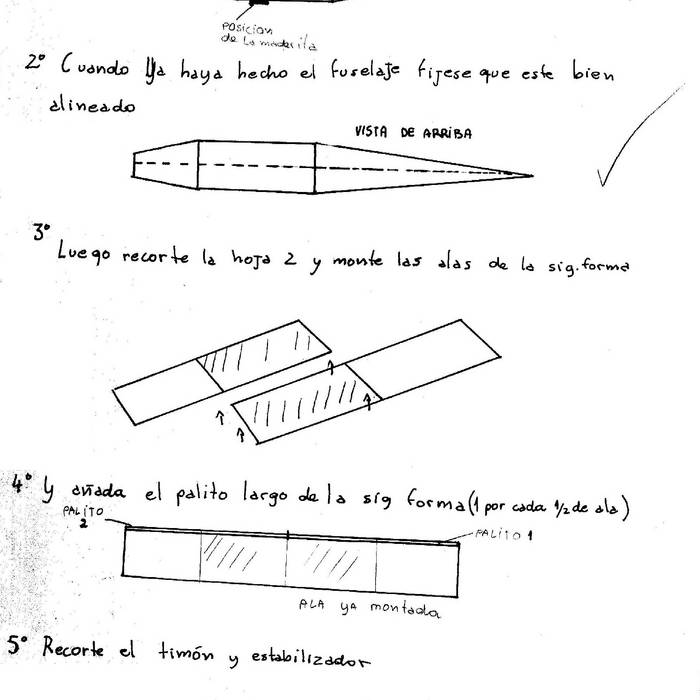 POSICION
de la maderita
2° Cuando Ya haya hecho el fuselaje fijese que este bien
alineado
VISTA DE ARRIBA
3°
Luego recorte la hoja 2 y monte las alas de la sig. forma
4° y añada el palito largo de la sig forma (1 por cada 1/2 de ala)
PALITO
2
PALITO 1
ALA YA montada
5° Recorte el timón y estabilizador